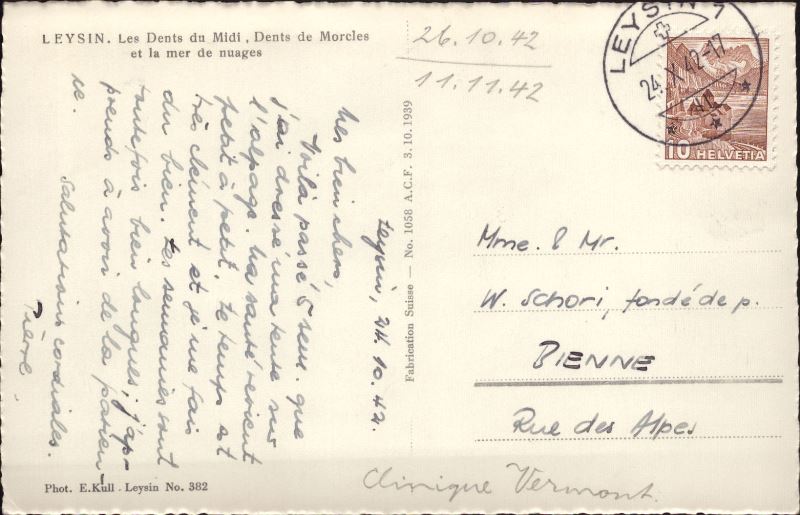 LEYSIN. Les Dents du Midi, Dents de Morcles
et la mer de nuages
26.10.42
11.11.42
LEYSIN 1
24.X.42-17
10 HELVETIA
Leysin, 24.10.42.
Mes bien chers,
Voilà passé 5 sem. que
j'ai dressé ma tente sur
l'alpage. Ma santé revient
petit à petit, le temps est
très clément et je me fais
du bien. Les semaines sont
toutefois bien longues, j'ap-
prends à avoir de la patien-
ce.
Salutations cordiales.
Pierre.
Fabrication Suisse — No. 1058 A.C.F. 3.10.1939
Mme. & Mr.
W. Schori, fondé de p.
BIENNE
Rue des Alpes
Clinique Vermont.
Phot. E. Kull. Leysin No. 382